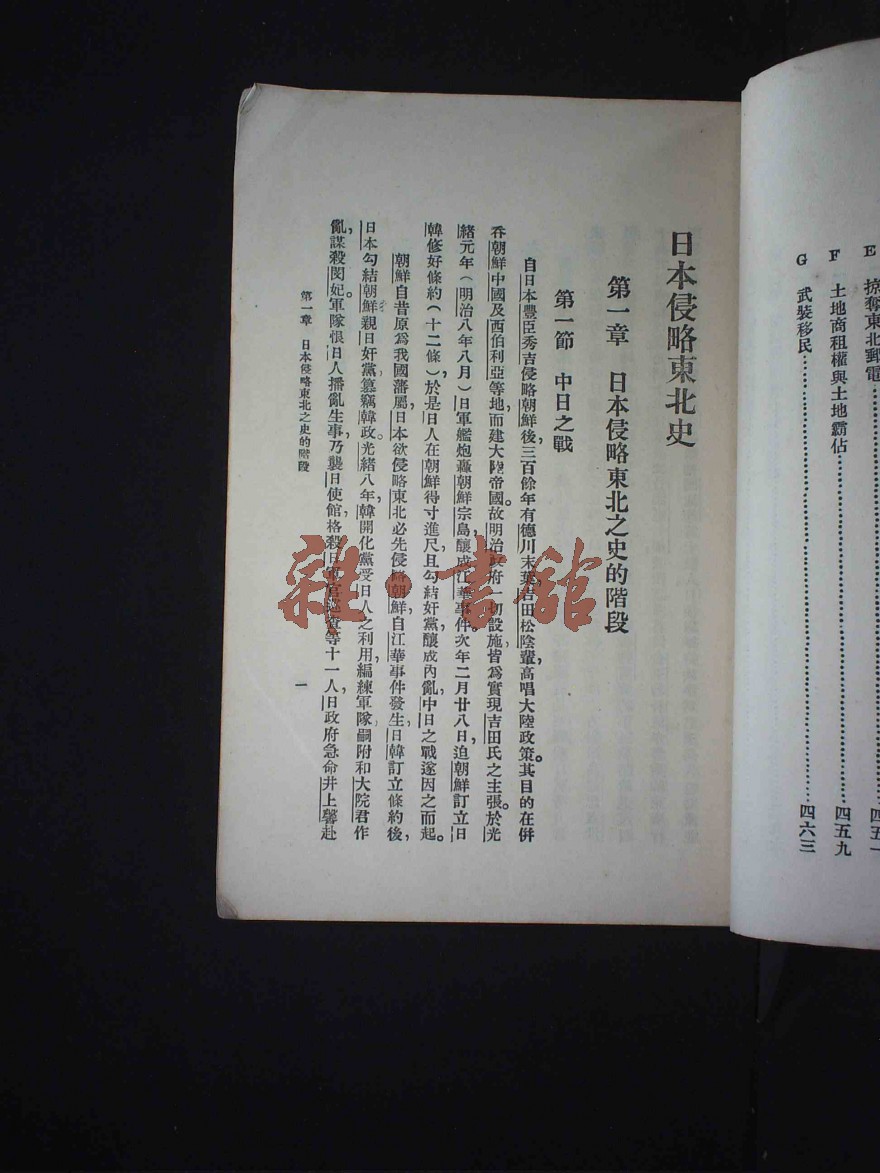 掠奪東北郵電……四五一
F 土地商租權與土地霸佔……四五九
G 武裝移民……四六三
日本侵略東北史
第一章 日本侵略東北之史的階段
第一節 中日之戰
自日本豐臣秀吉侵略朝鮮後,三百餘年有德川末葉吉田松陰輩,高唱大陸政策。其目的在併
吞朝鮮中國及西伯利亞等地,而建大陸帝國。故明治政府一切設施皆爲實現吉田氏之主張。於光
緒元年(明治八年八月)日軍艦炮轟朝鮮宗島,釀成江華事件。次年二月廿八日,迫朝鮮訂立日
韓修好條約(十二條)於是日人在朝鮮得寸進尺,且勾結奸黨釀成內亂,中日之戰遂因之而起。
朝鮮自昔原爲我國藩屬,日本欲侵略東北必先侵略朝鮮。自江華事件發生,日韓訂立條約後,
日本勾結朝鮮親日奸黨,篡竊韓政。光緒八年,韓開化黨受日人之利用,編練軍隊,嗣附和大院君作
亂,謀殺閔妃。軍隊恨日人播亂生事,乃襲日使館,格殺日軍官巡查等十一人,日政府急命井上馨赴
第一章 日本侵略東北之史的階段
一
雜·書館